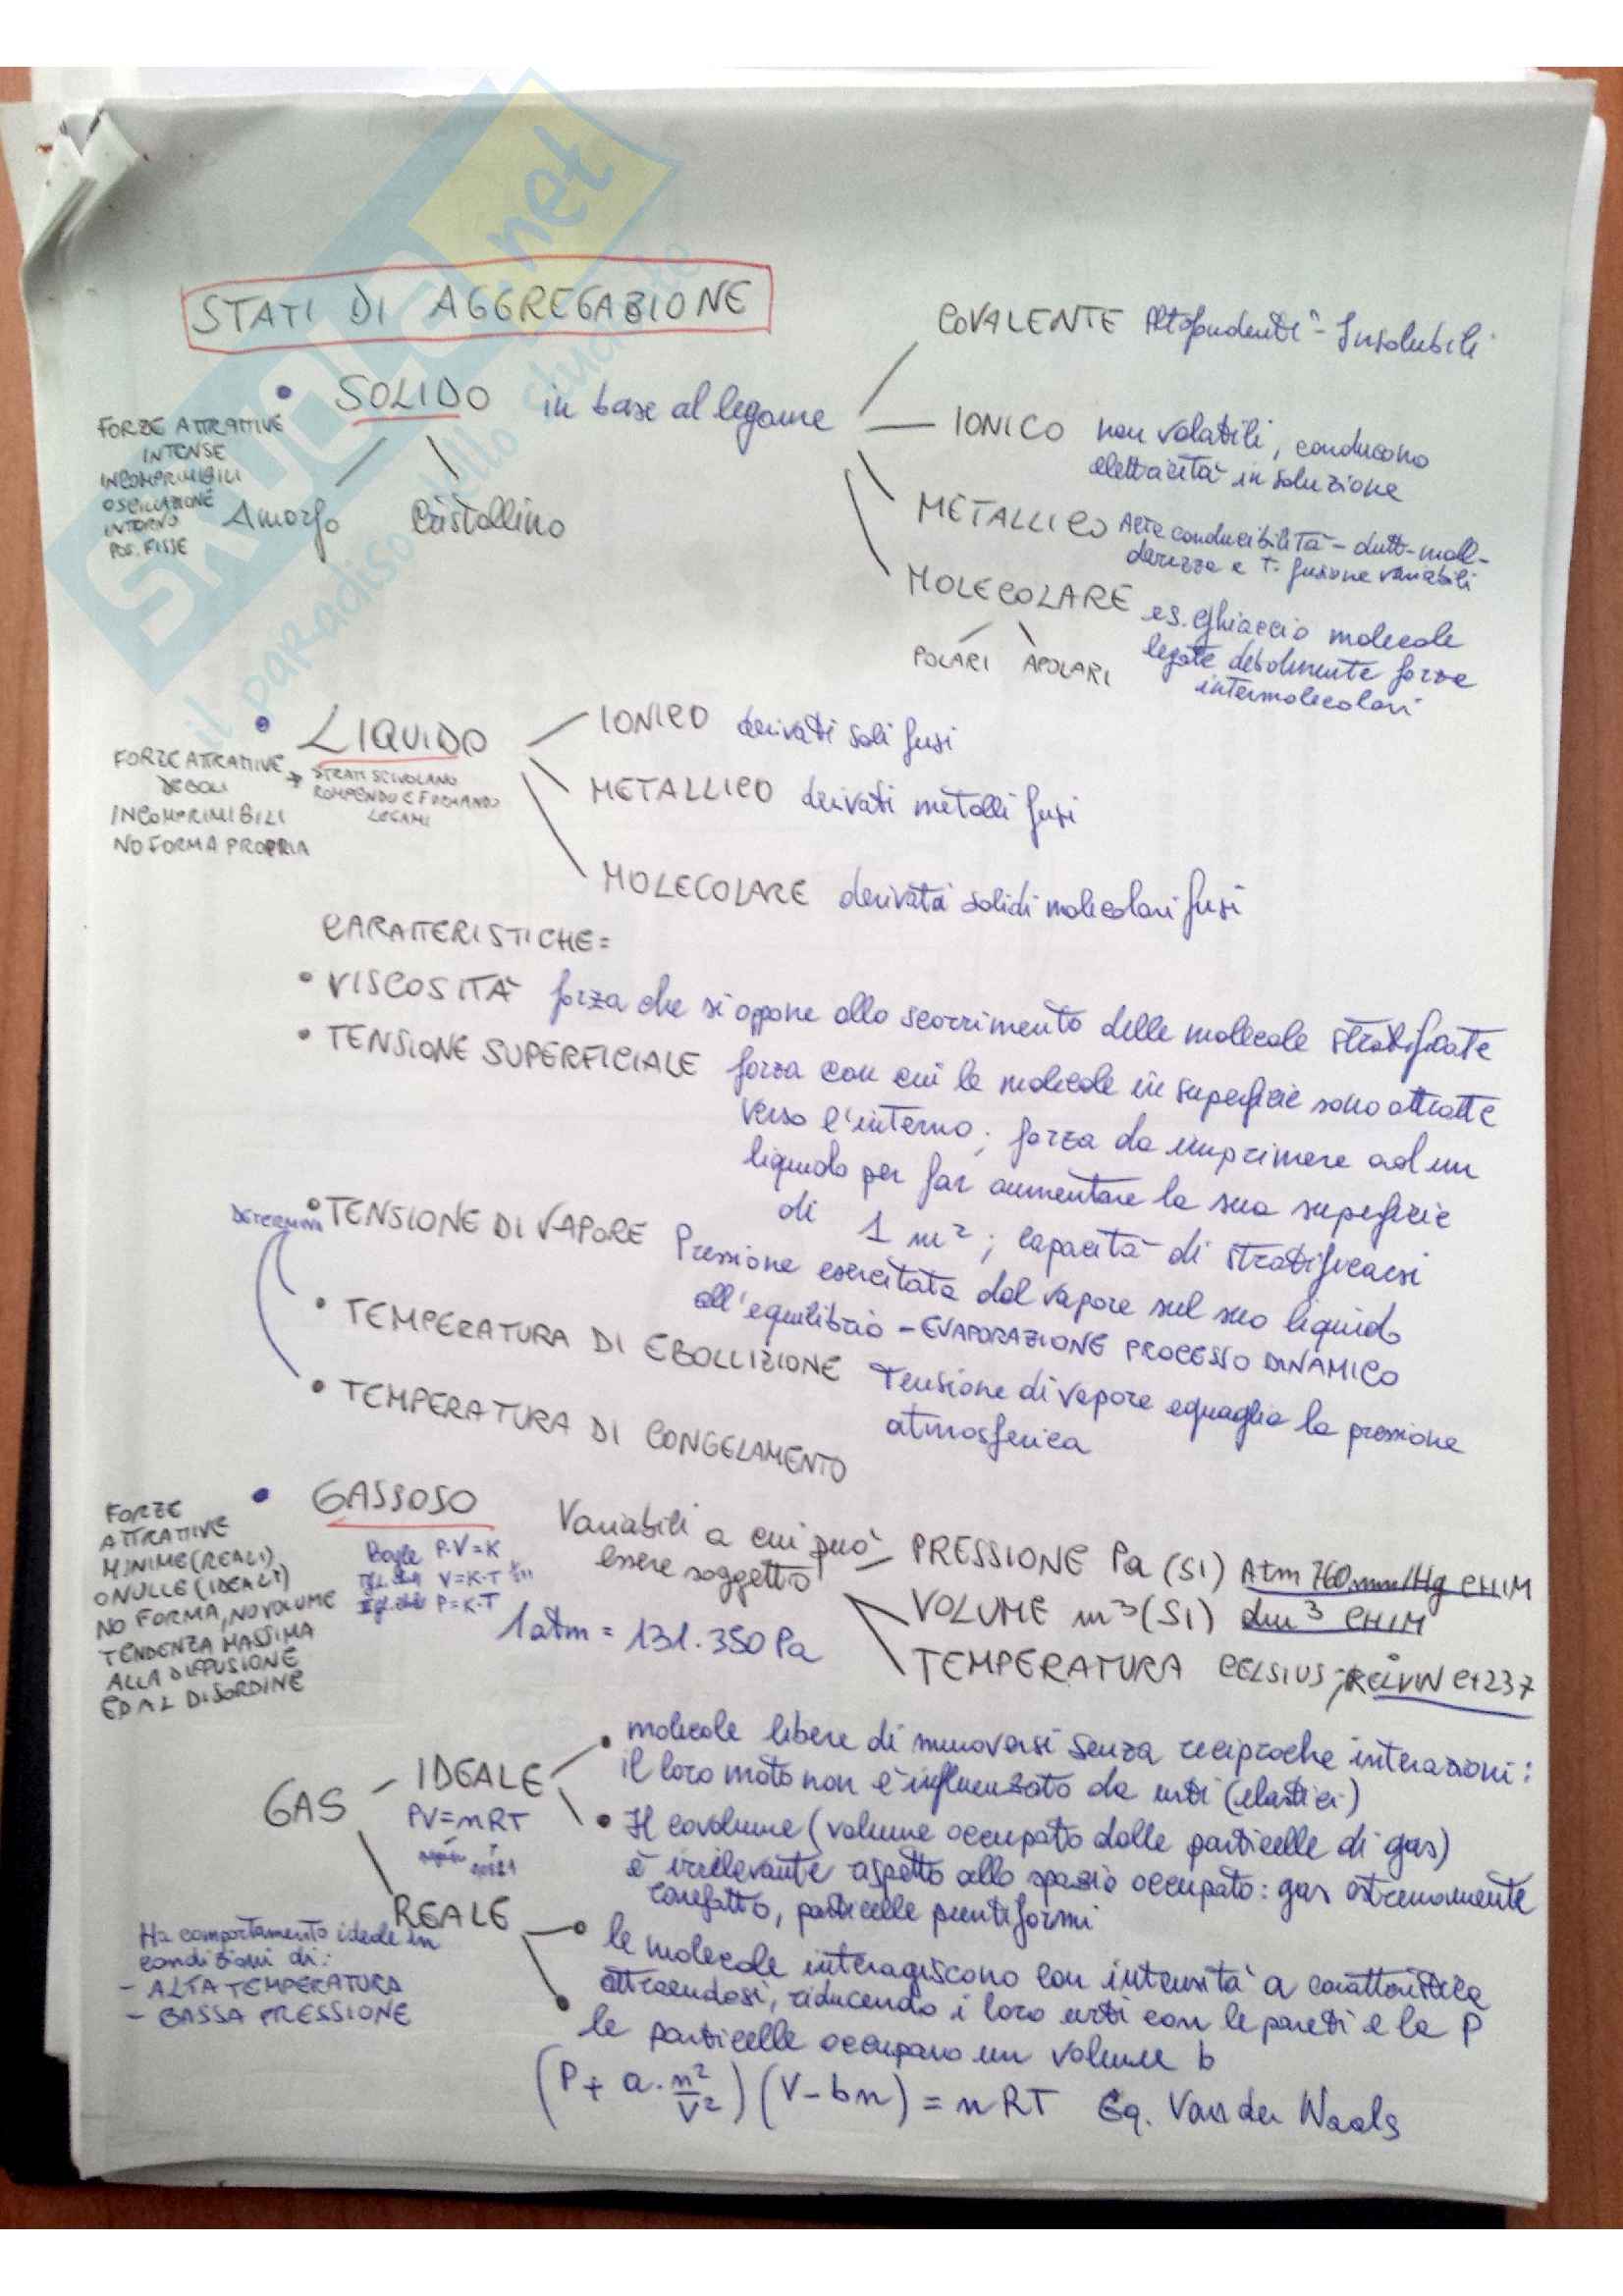 SKUOLA.net
il paradiso dello studente
STATI DI AGGREGAZIONE
• SOLIDO in base al legame
FORZE ATTRATTIVE
INTENSE
INCOMPRIMIBILI
OSCILLAZIONE
INTORNO
POS. FISSE
Amorfo Cristallino
COVALENTE Altofondenti - Insolubili
IONICO non volatili, conducono
elettricità in soluzione
METALLICO Alta conducibilità - dutt-mall-
durezza e T. fusione variabili
MOLECOLARE es. ghiaccio molecole
legate debolmente forze
intermolecolari
POLARI APOLARI
• LIQUIDO
FORZE ATTRATTIVE
DEBOLI
INCOMPRIMIBILI
NO FORMA PROPRIA
→ STRATI SCIVOLANO
ROMPENDO E FORMANDO
LEGAMI
IONICO derivati sali fusi
METALLICO derivati metalli fusi
MOLECOLARE derivati solidi molecolari fusi
CARATTERISTICHE=
• VISCOSITÀ forza che si oppone allo scorrimento delle molecole stratificate
• TENSIONE SUPERFICIALE forza con cui le molecole in superficie sono attratte
verso l'interno; forza da imprimere ad un
liquido per far aumentare la sua superficie
di 1 m²; capacità di stratificarsi
DETERMINA
• TENSIONE DI VAPORE Pressione esercitata dal vapore sul suo liquido
all'equilibrio - EVAPORAZIONE PROCESSO DINAMICO
• TEMPERATURA DI EBOLLIZIONE Tensione di vapore eguaglia la pressione
atmosferica
• TEMPERATURA DI CONGELAMENTO
• GASSOSO
FORZE
ATTRATTIVE
MINIME (REALI)
O NULLE (IDEALI)
NO FORMA, NO VOLUME
TENDENZA MASSIMA
ALLA DIFFUSIONE
ED AL DISORDINE
Boyle P·V=K
V=K·T
P=K·T
1 atm = 131.350 Pa
Variabili a cui può
essere soggetto
PRESSIONE Pa (SI) Atm 760 mm/Hg CHIM
VOLUME m³ (SI) dm³ CHIM
TEMPERATURA CELSIUS; KELVIN C+237
GAS
IDEALE
PV=nRT
• molecole libere di muoversi senza reciproche interazioni:
il loro moto non è influenzato da urti (elastici)
• Il covolume (volume occupato dalle particelle di gas)
è irrilevante rispetto allo spazio occupato: gas estremamente
rarefatto, particelle puntiformi
REALE
Ha comportamento ideale in
condizioni di:
- ALTA TEMPERATURA
- BASSA PRESSIONE
• le molecole interagiscono con intensità a caratteristica
attraendosi, riducendo i loro urti con le pareti e la P
• le particelle occupano un volume b
(P + a·n²/V²)(V-bn) = nRT Eq. Van der Waals